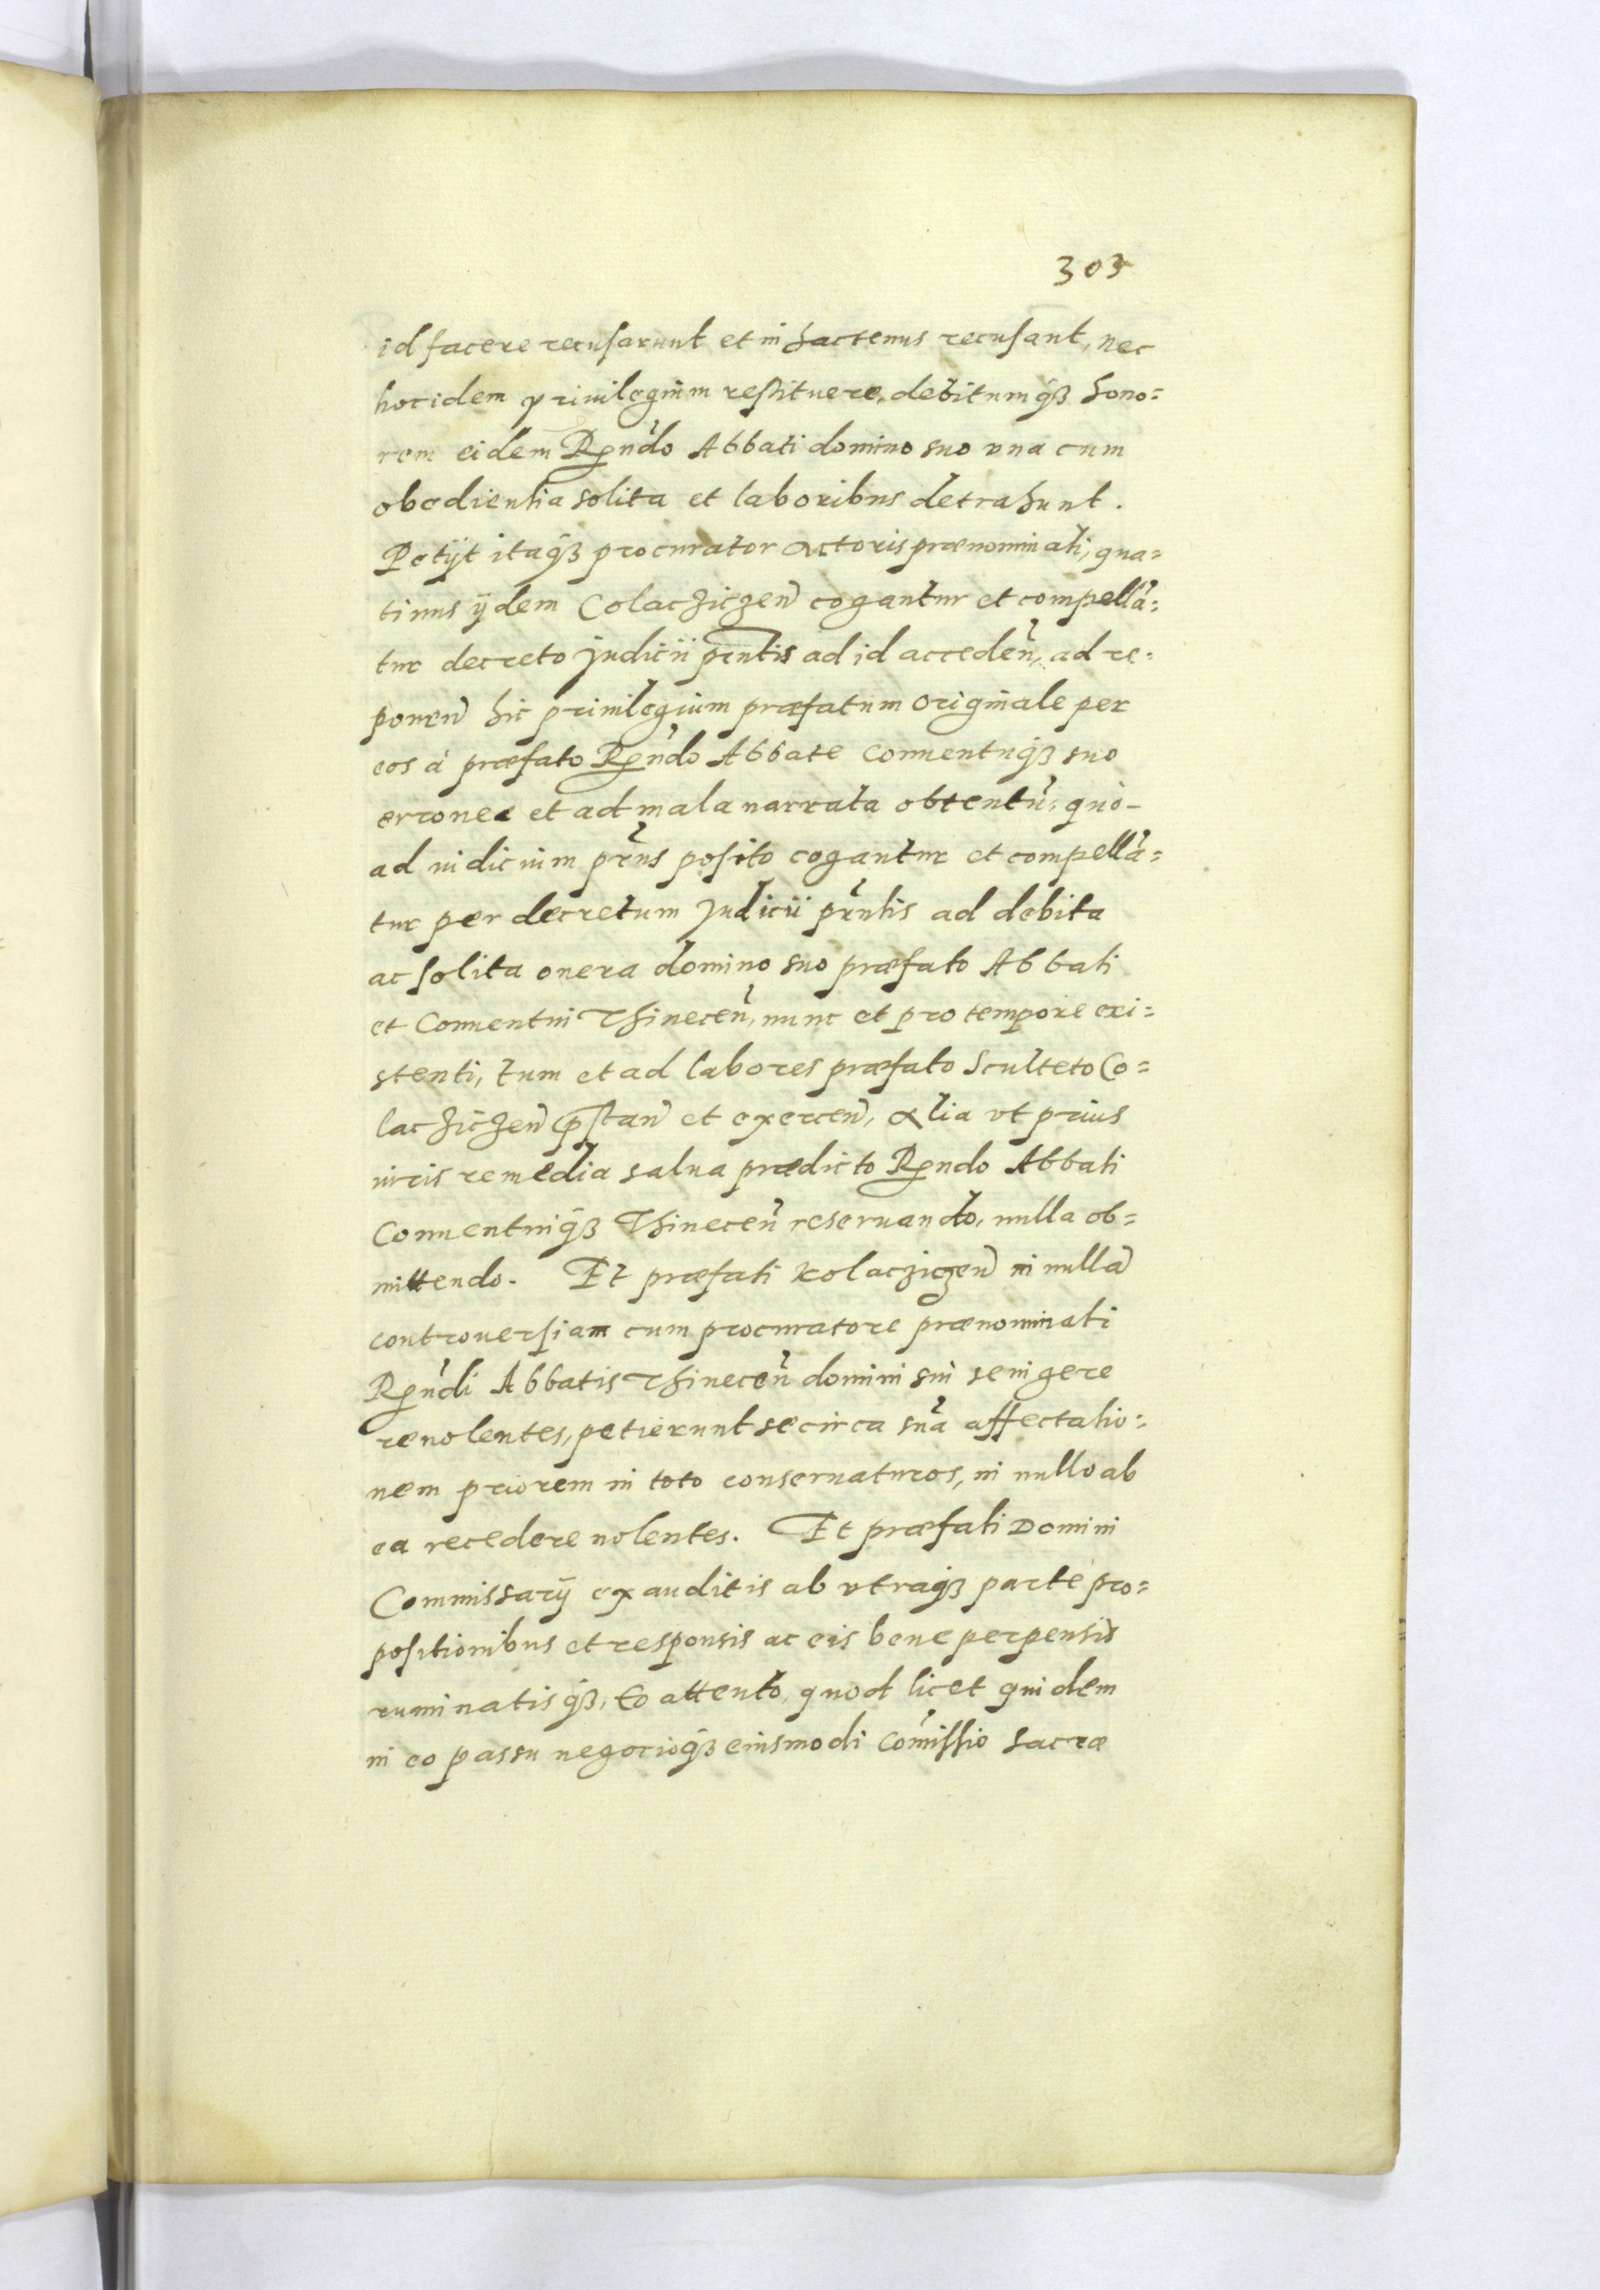 303
id facere recusarunt et in hactenus recusant, nec
hoc idem privilegium restituere, debitumq̃ȝ hono=
rem eidem Rṇdo Abbati domino suo vna cum
obedientia solita et laboribus detrahunt.
Petijt itaq̃ȝ procurator actoris prænominati, qua=
tinus ijdem Colacziczen̄ cogantur et compellā=
tur decreto judicii pntis ad id acceden̄, ad re=
ponen̄ hic priuilegium præfatum originale per
eos à præfato Rndo Abbate Conuentuq̃ȝ suo
erronee et ad mala narrata obtentū: quo-
ad iudicium prus posito cogantur et compellā=
tur per decretum judicii prntis ad debita
ac solita onera domino suo præfato Abbati
et Conuentui Thinecen̄, nunc et pro tempore exi=
stenti, tum et ad labores præfato Sculteto Co=
lacziczen̄ p̄stan̄ et exercen̄, alia vt prius
iuris remedia salua prædicto Rndo Abbati
Conuentuiq̃ȝ Thinecen̄ reseruando, nulla ob=
mittendo. Et præfati Kolacziczen̄ in nullā
controuersiam cum procuratore prænominati
Rndi Abbatis Thinecen̄ domini sui se ingere
re nolentes, petierunt se circa suā affectatio=
nem priorem in toto conseruaturos, in nullo ab
ea recedere nolentes. Et præfati Domini
Commissarij exauditis ab vtraq̃ȝ parte pro=
positionibus et responsis ac eis bene perpensis
ruminatisq̃ȝ, Eo attento, quod licet quidem
in eo passu negocioq̃ȝ eiusmodi Com̄issio Sacræ